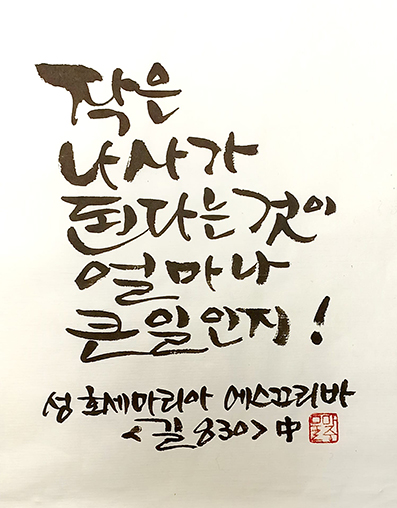 작은
나사가
된다는것이
얼마나
큰일인지!
성 호세마리아 에스끄리바
<길 830> 中